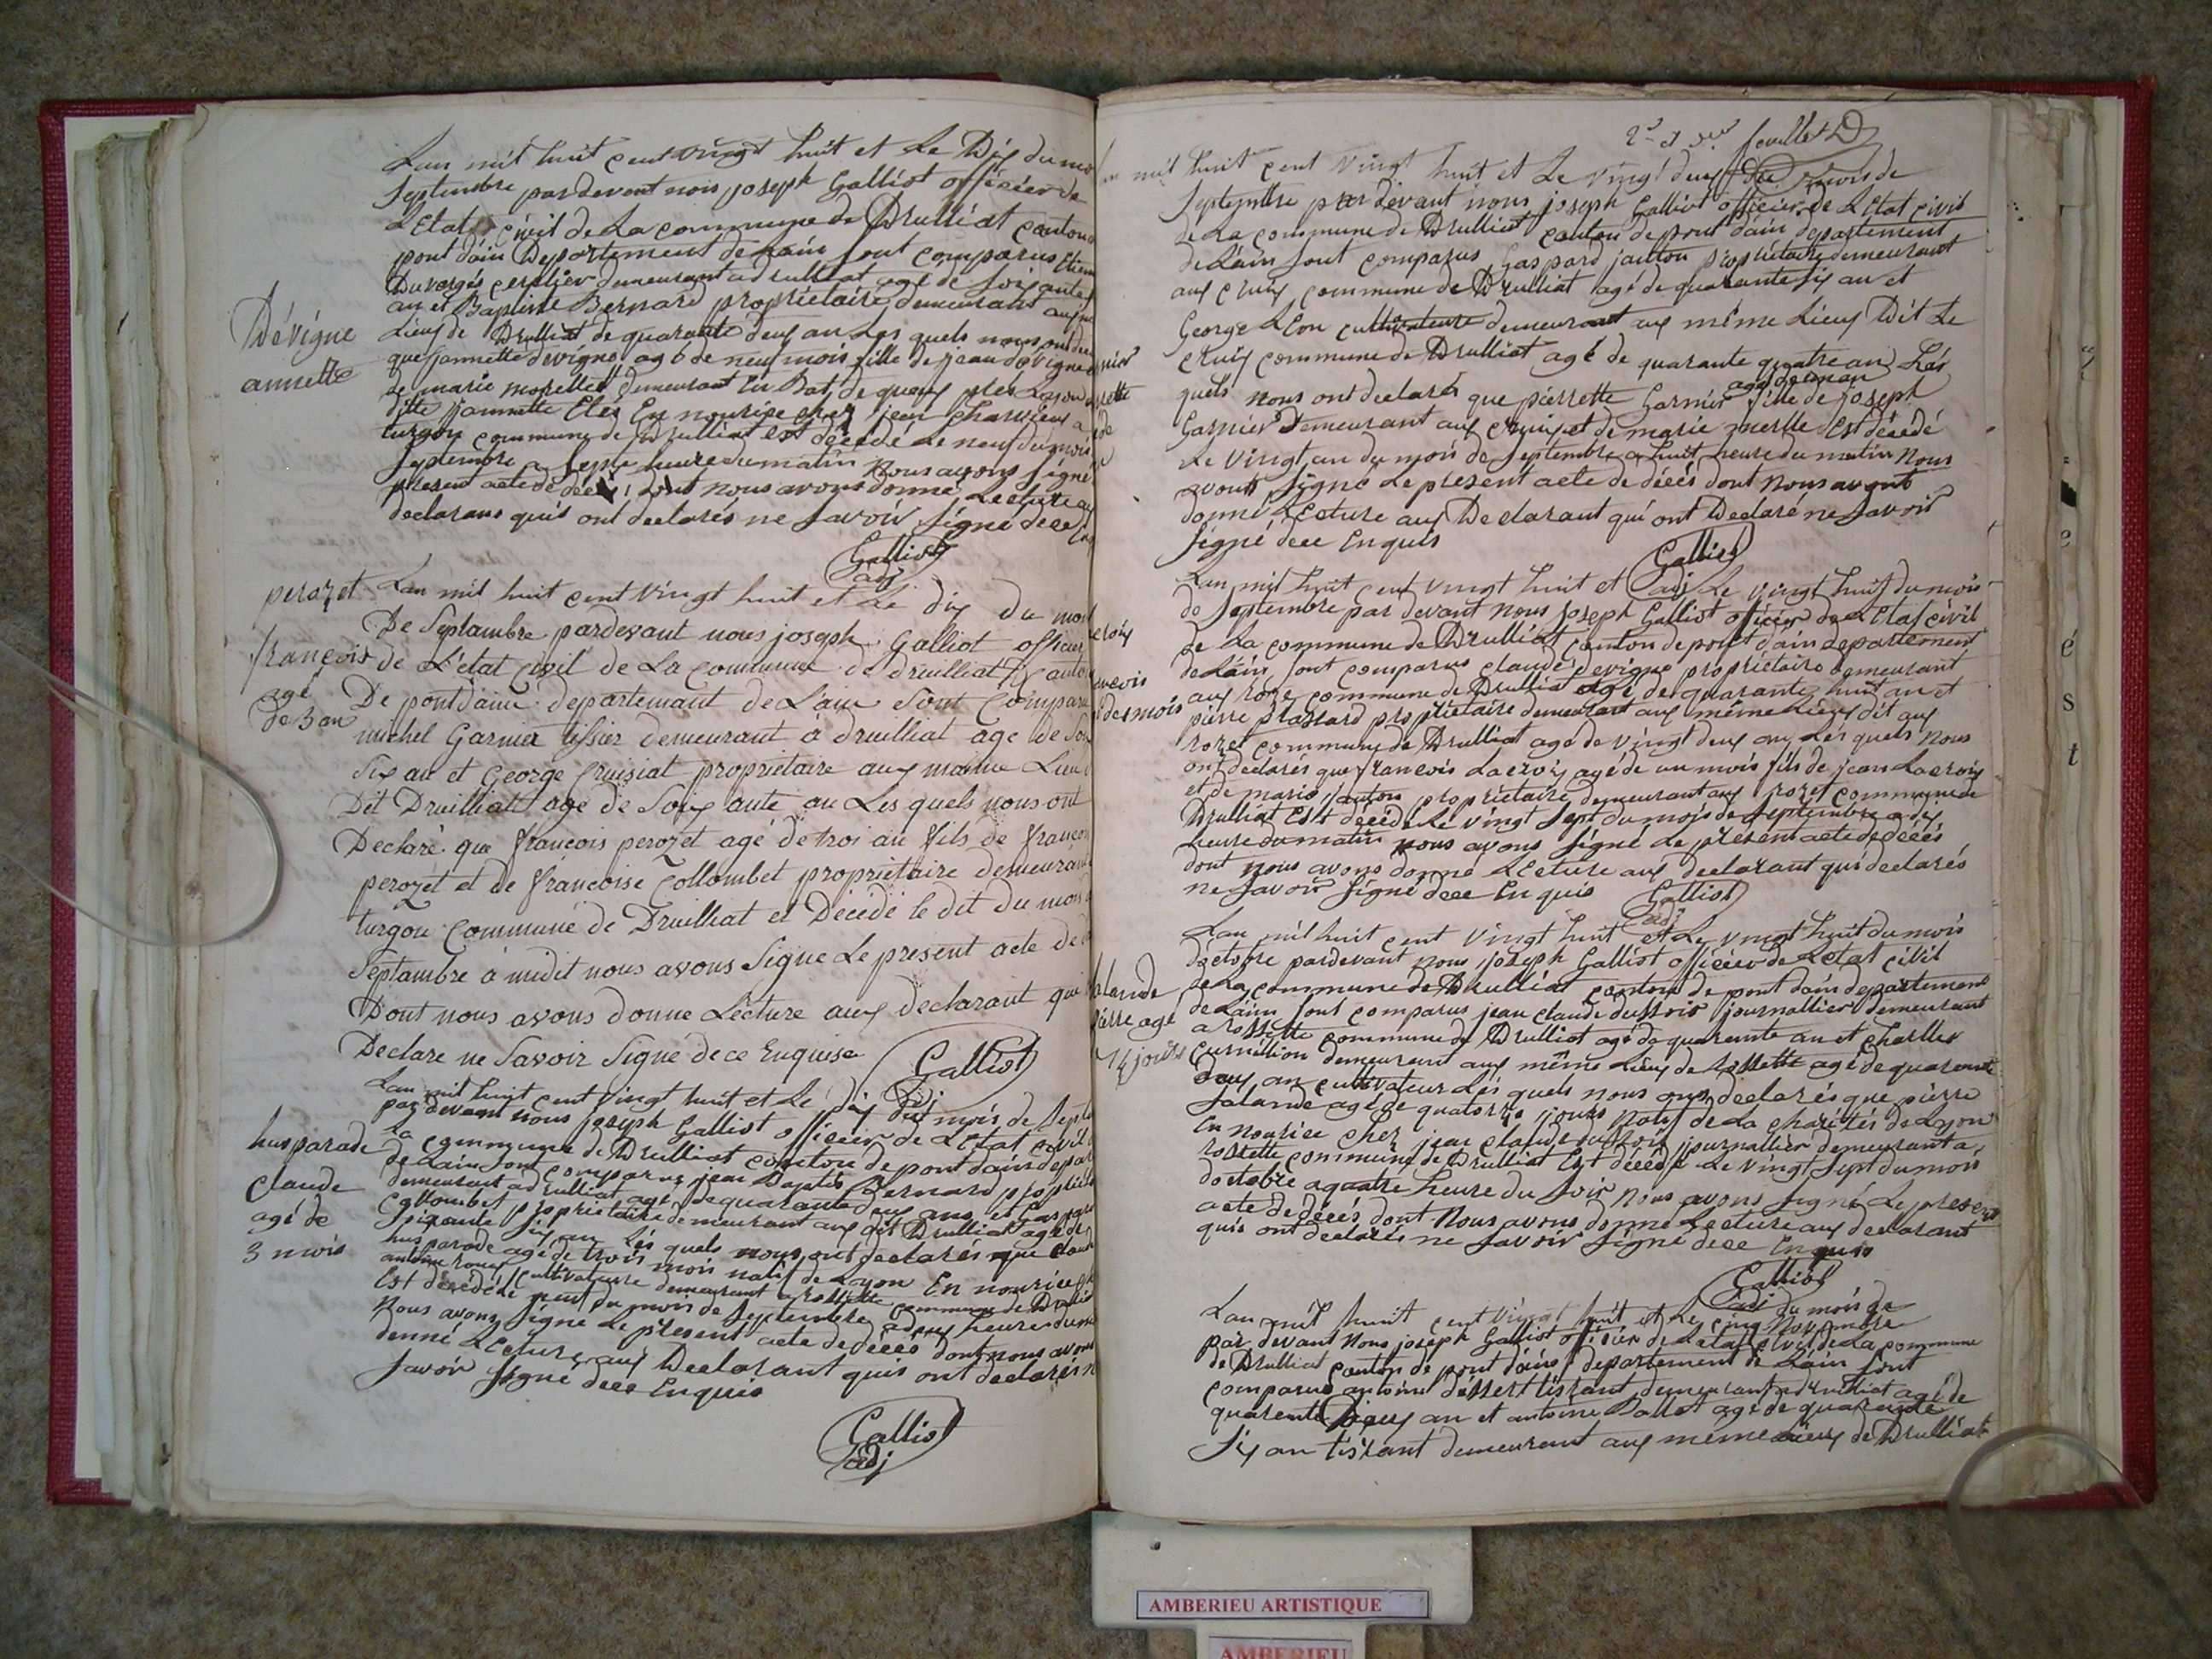 Lan mil huit cent vingt huit et Le Dix du moi
Septembre pardevent nois joseph Galliot officier de
LEtat civil de La commune de Drulliat canton
pont dain Departement de Lain sont comparus Etien
Duvorgés demeurant a drulliat agé de soixante
an et Baptiste Bernard propriétaire demeurant aux
Dévigne
annette
Lieux de Drulliat de quarante deux an Les quels nous ont de
que jannette devigne agé de neuf mois fille de jean devigne
de marie morellet demeurant En
ditte jannette Eles En nourice chez jean
turgon commune de Drulliat est décédé Le neuf du mois
Septembre a septe heure du matin nous avons signé
présent acte de décès dont nous avons donné Lecture aux
declarans quis ont declarés ne savoir signé dece
Galliot
adj
perozet
françois
agé
de 3 an
Lan mil huit cent vingt huit et Le dix du moi
De Septambre pardevant nous joseph Galliot officier
de L'état civil de La commune de druilliat canton
De pontdain departemant de Lain sont compara
michel Garnier tissier demeurant à druilliat age de soi
six an et George Cruisiat propriétaire aux maime Lieu
Dit Druilliat agé de Soix ante an Les quels nous ont
Declaré que françois perozet agé de troi an fils de françoi
perozet et de françoise Collombet propriétaire demeurant
turgon Commune de Druilliat et Décédé le dit du mois
Septambre à midit nous avons Signe Le present acte de
Dont nous avons donne Lecture aux declarant qui
Declare ne Savoir Signe dece Enquise
Galliot
adj
husparade
claude
agé de
3 mois
Lan mil huit cent vingt huit et Le dix du mois de Sept
par devant nous joseph Galliot officier de LEtat civil
La commune de Drulliat canton de pont dain depar
de Lain sont comparus jean Baptis Bernard propriét
demeurant a drulliat agé de quarante deux ans et Gaspar
Collombet propriétaire demeurant aux dit Drulliat agé de
soixante six an Les quels nous ont declarés que claude
husparade agé de trois mois natif de Lyon En nourice
antoine roux cultivateure demeurant a rossette commune de Drulliat
Est décédé Le neuf du mois de Septembre a deux heure du
Nous avons signé Le present acte de décès dont nous avons
donné Lecture aux Declarant quis ont declarés n
savoir signé dece Enquis
Galliot
adj
feuillet
Lan mil huit cent vingt huit et Le vingt deux du mois de
Septembre par devant nous joseph Galliot officier de LEtat civil
de La commune de Drulliat canton de pont dain departement
de Lain sont comparus Gaspard janton propriétaire demeurant
aux cruix commune de Drulliat agé de quarante six an et
George Léon cultivateure demeurant aux même Lieux Dit Le
cruix commune de Drulliat agé de quarante quatre an Les
quels nous ont declarés que pierrette Garnier agé de un an fille de joseph
Garnier Demeurant aux cruix et de marie est décédé
Le vingt an du mois de Septembre a huit heure du matin Nous
avons signé Le present acte de décès dont nous avons
donné LEcture aux Declarant qui ont Declaré ne savoir
signé dece Enquis
Galliot
adj
Lan mil huit cent vingt huit et Le vingt huit du mois
de Septembre par devant nous joseph Galliot officier de LEtat civil
de La commune de Drulliat canton de pont dain departement
de Lain sont comparus claude devigne propriétaire demeurant
aux roze commune de Drulliat agé de quarante huit an et
pierre Brassard propriétaire demeurant aux même Lieux dit aux
rozet commune de Drulliat agé de vingt deux an Les quels nous
ont declarés que francois Lacroix agé de un mois fils de jean Lacroix
et de marie janton propriétaire demeurant aux rozet commune de
Drulliat Est décédé Le vingt sept du mois de Septembre a dix
heure du matin nous avons signé Le présent acte de décès
dont nous avons donné LEcture aux declarant quis declarés
ne savoir signé dece Enquis
Galliot
adj
Jalande
pierre agé
14 jours
Lan mil huit cent vingt huit et Le vingt huit du mois
doctobre pardevant nous joseph Galliot officier de Letat civil
de La commune de Drulliat canton de pont dain departement
de Lain sont comparus jean claude dubois journallier demeurant
a rossette commune de Drulliat agé de quarante an et charlles
Curnillion demeurant aux même Lieux de Rossette agé de quarente
deux an cultivateur Les quels nous ons declarés que pierre
Jalande agé de quatorze jours natif de La charités de Lyon
En nourice chez jean claude dubois journallier demeurant a
rossette commune de Drulliat Est décédé Le vingt sept du mois
doctobre a quatre heure du soir nous avons signé Le present
acte de décès dont Nous avons donné Lecture aux declarant
quis ont declarés ne savoir signé dece Enquis
Galliot
adj
Lan mil huit cent vingt huit et Le cinq du mois de Novembre
par devant nous joseph Galliot officier de Letat civil de La commune
de Drulliat canton de pont dains departement de Lain sont
comparus antoine demeurant a drulliat agé de
quarente deux an et antoine agé de quarente
six an tisrant demeurant aux même Lieux de Drulliat
AMBERIEU ARTISTIQUE
AMBERIEU